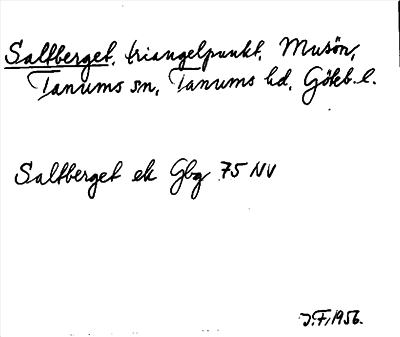 Saltberget, triangelpunkt, Musön,
Tanums sn, Tanums hd, Göteb. l.
Saltberget ek Gbg 75 NV
J.F. 1956.